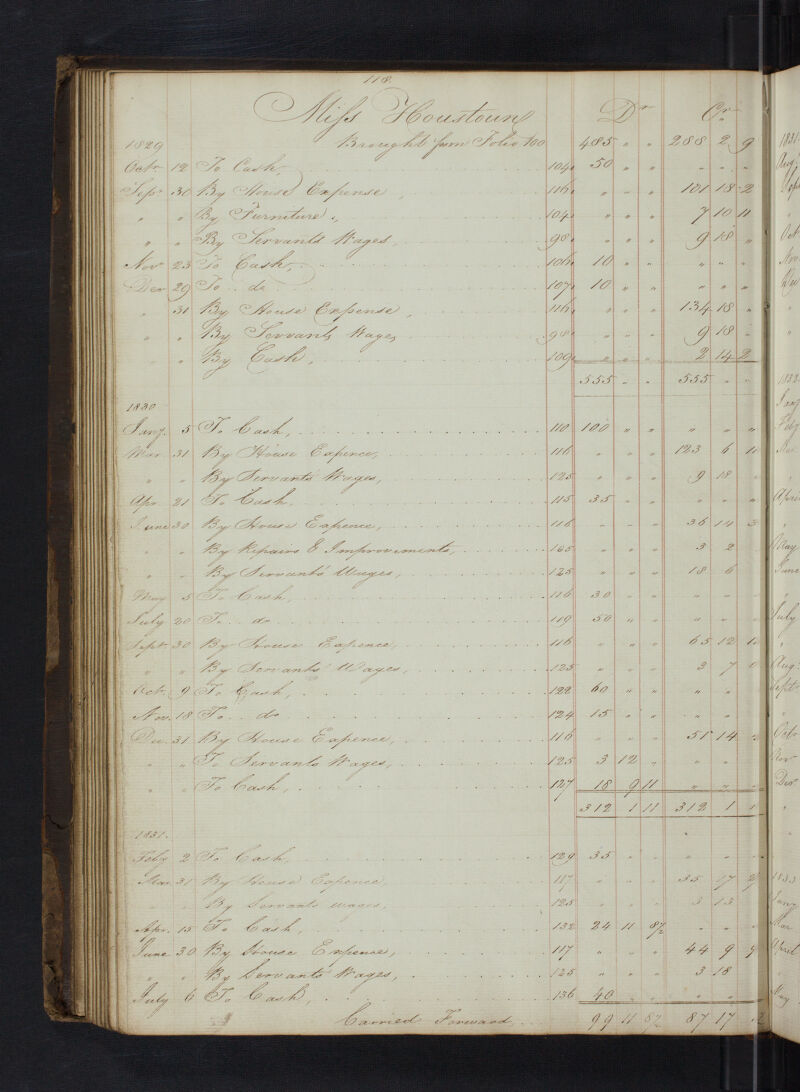 118
Miss Houstoun Dr Cr
1829 Brought from Folio 100 485 " " 288 2 9
Octr 12 To Cash 104 50 " " " " "
Sepr 30 By House Expense 116 " " " 101 18 2
" " By Furniture 104 " " " 7 10 11
" " By Servants Wages 98 " " " 9 18 "
Nov 23 To Cash 106 10 " " " " "
Decr 29 To do 107 10 " " " " "
" 31 By House Expense 116 " " " 134 18 "
" " By Servants Wages 98 " " " 9 18 "
" " By Cash 109 " " " 2 14 2
555 " " 555 " "
1830
Jany 5 To Cash, 110 100 " " " " "
Mar 31 By House Expence, 116 " " " 123 6 11
" " By Servants Wages, 125 " " " 9 18 "
Apr 21 To Cash 115 35 " " " " "
June 30 By House Expence, 116 " " " 36 14 3
" " By Repairs & Improvements, 165 " " " 3 2 "
" " By Servants Wages, 125 " " " 18 6 "
May 5 To Cash, 116 30 " " " " "
July 20 To do 119 50 " " " " "
Sept 30 By House Expence, 116 " " " 65 12
" " By Servants' Wages, 125 " " " 3 7
Oct 9 To Cash, 122 60 " " " " "
Nov. 18 To do 124 15 " " " " "
Dec. 31 By House Expence, 116 " " " 51 14
" " To Servants Wages, 125 3 12 " " " "
" " To Cash, 127 18 9 11 " " "
312 1 11 312 1 1
1831.
Feby 2 To Cash, 129 35 " " " " "
Mar 31 By House Expence, 117 " " " 35 17
" By Servants wages, 125 " " " 3 13
Apr. 15 To Cash, 132 24 11 8½ " " "
June 30 By House Expences, 117 " " " 44 9 9
" " By Servants' Wages, 125 " " " 3 18
July 6 To Cash, 136 40 " " " " "
Carried Forward 99 11 8½ 87 17 2
1831
Aug.
Oct
Nov
April
May
June
July
Aug.
Sept
Octr
Nov
Decr
1833
Jany
Mar
April
May